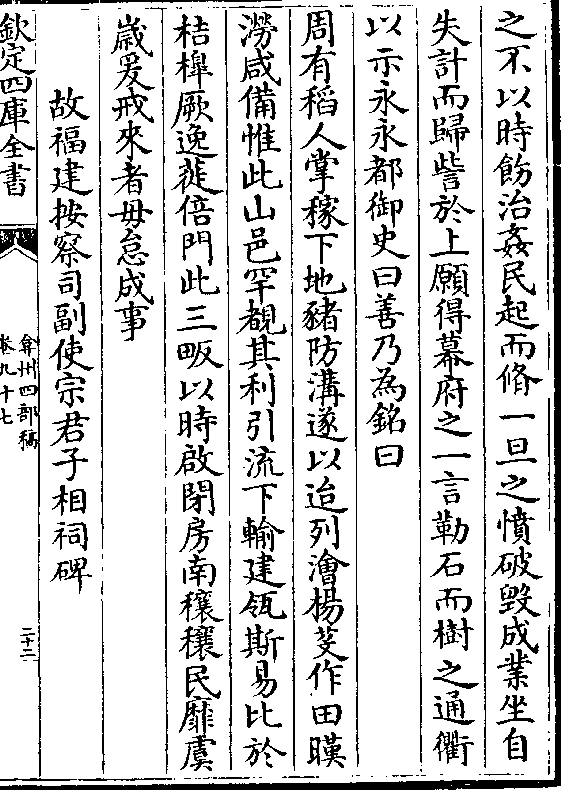 之不以時飭治姦民起而脩一旦之憤破毀成業坐自
失計而歸訾於上願得幕府之一言勒石而樹之通衢
以示永永都御史曰善乃為銘曰
周有稻人掌稼下地豬防溝遂以迨列澮楊芟作田暵
澇咸備惟此山邑罕覩其利引流下輸建瓴斯易比於
桔槔厥逸蓰倍門此三畈以時啟閉房南穰穰民靡虞
嵗爰戒來者毋怠成事
故福建按察司副使宗君子相祠碑
欽定四庫全書
弇州四部稿
卷九十七
二十二